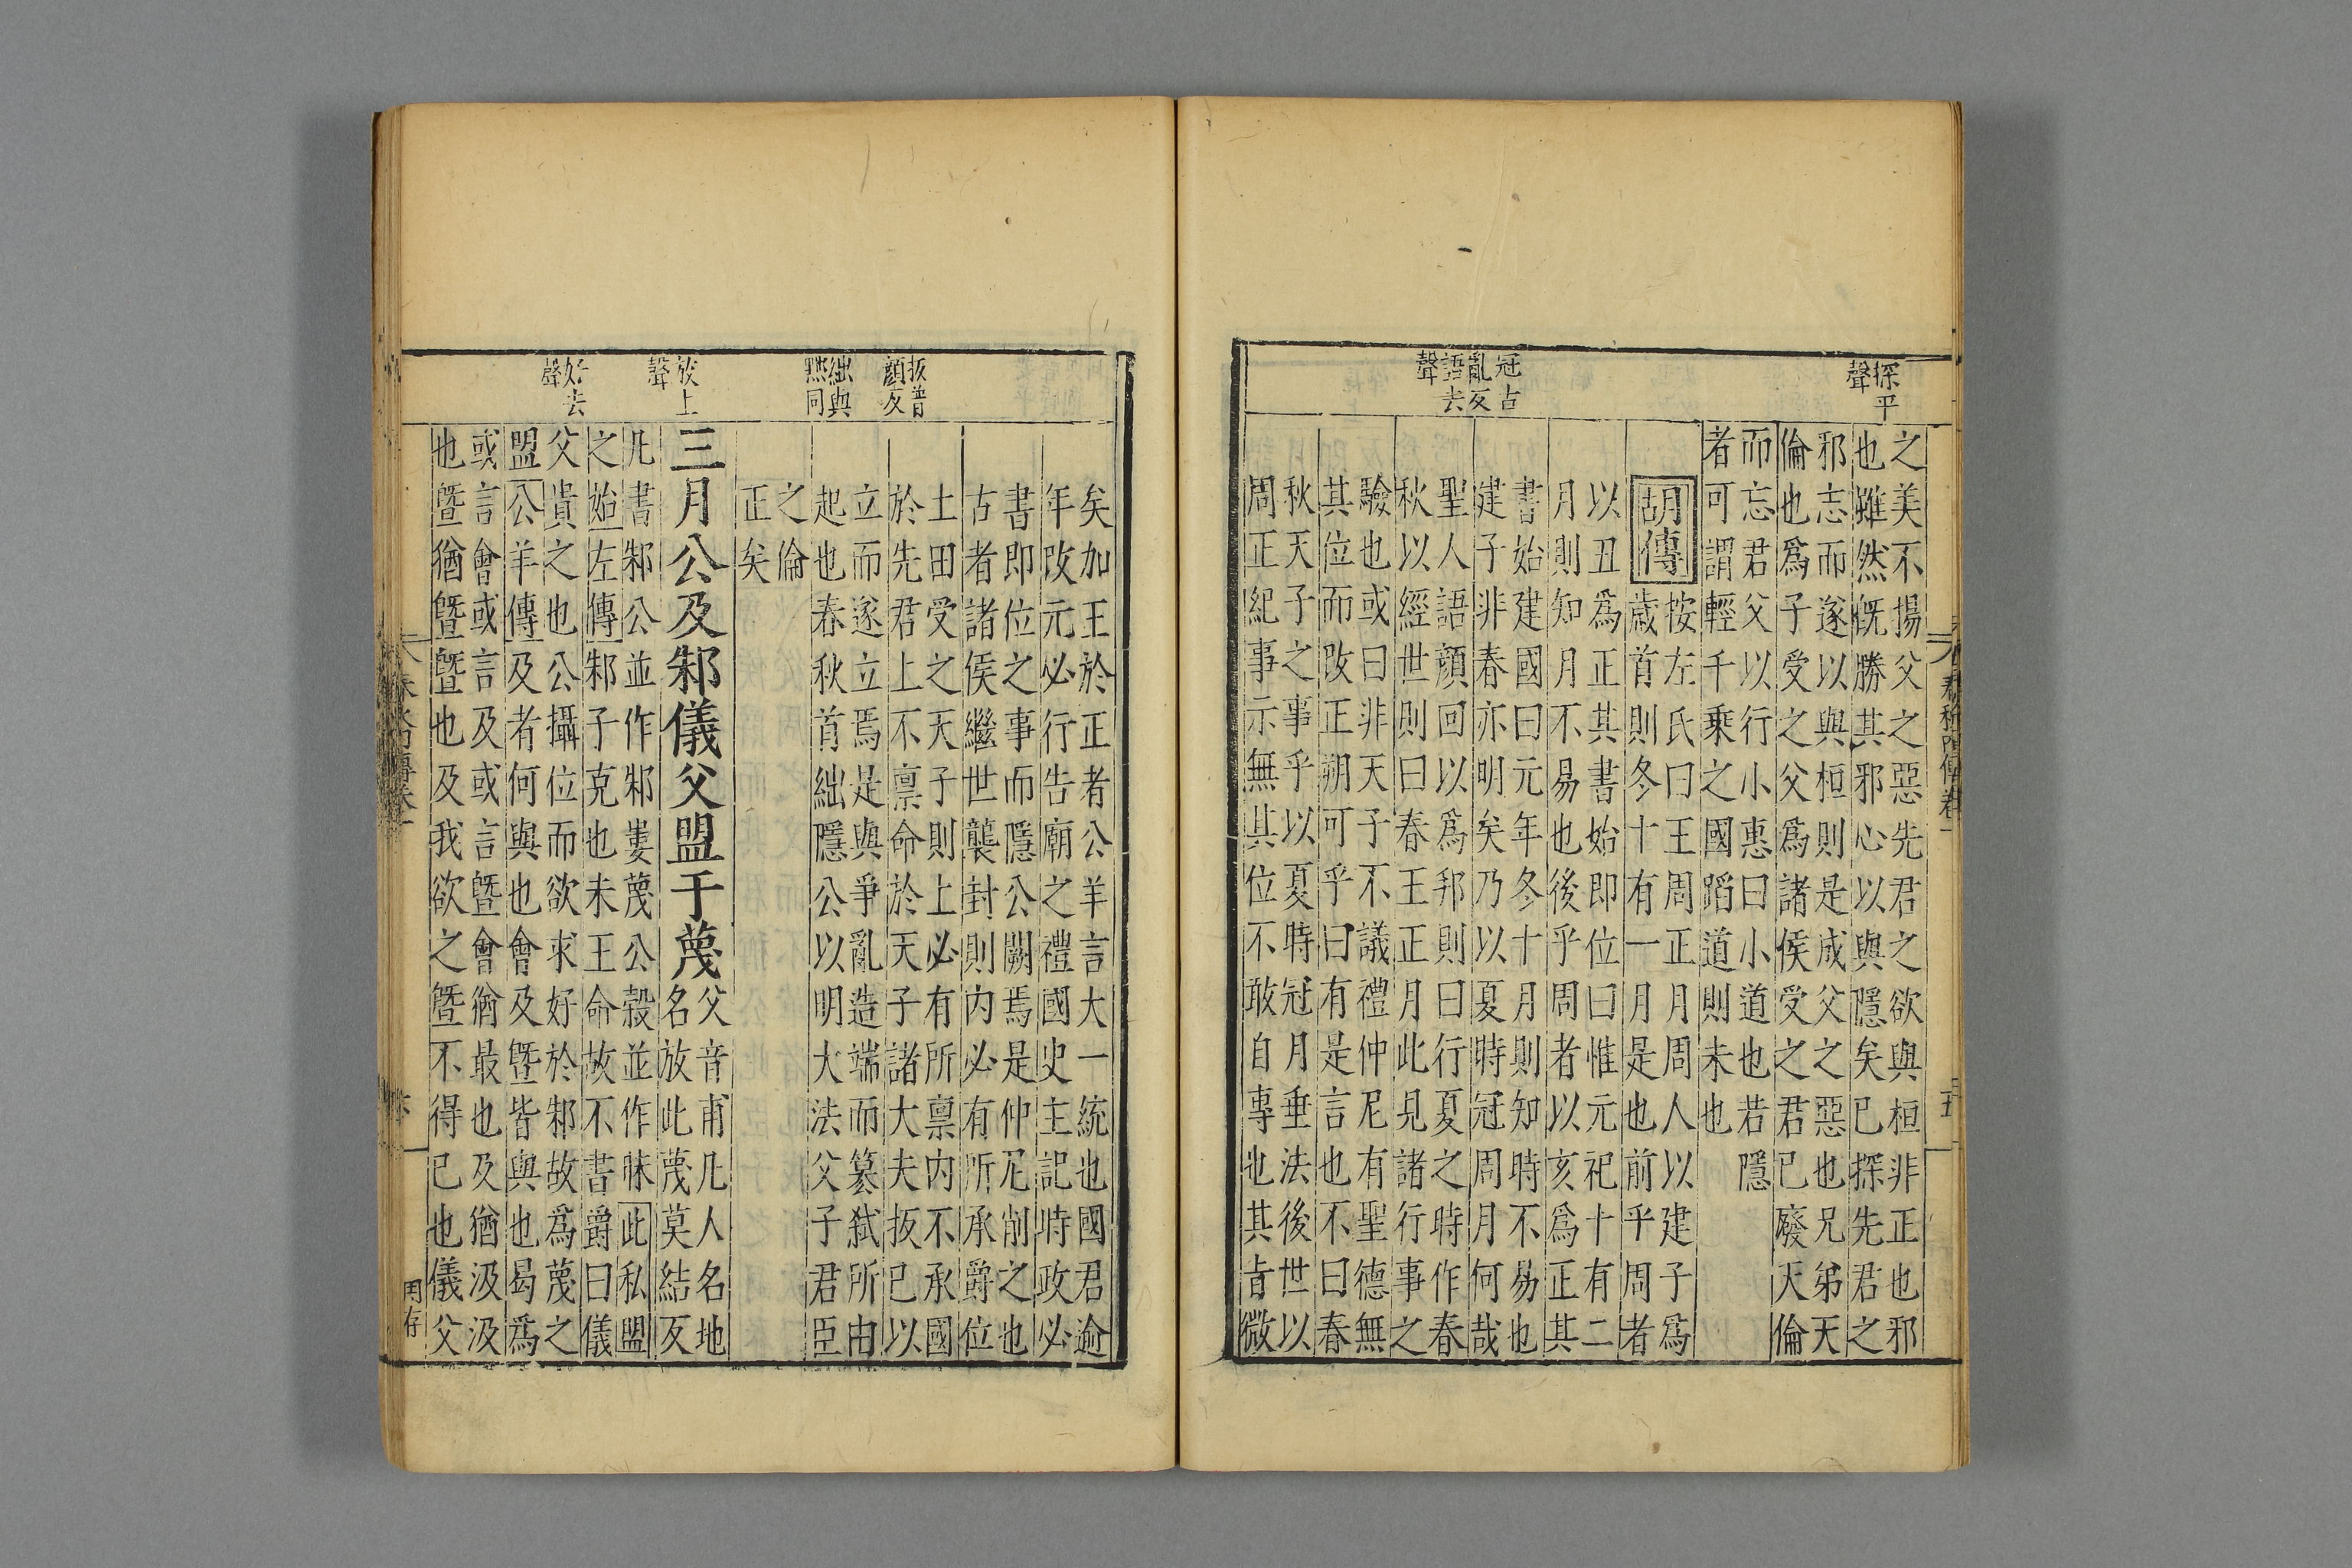 探平
聲
冠古
亂反
語去
聲
之美不揚父之惡先君之欲與桓非正也邪
也雖然旣勝其邪心以與隱矣已探先君之
邪志而遂以與桓則是成父之惡也兄弟天
倫也爲子受之父爲諸侯受之君已廢天倫
而忘君父以行小惠曰小道也若隱
者可謂輕千乗之國蹈道則未也
胡傳
按左氏曰王周正月周人以建子爲
歲首則冬十有一月是也前乎周者
以丑爲正其書始即位曰惟元祀十有二
月則知月不易也後乎周者以亥爲正其
書始建國曰元年冬十月則知時不易也
建子非春亦明矣乃以夏時冠周月何哉
聖人語顔回以爲邦則曰行夏之時作春
秋以經世則曰春王正月此見諸行事之
驗也或曰非天子不議禮仲尼有聖德無
其位而改正朔可乎曰有是言也不曰春
秋天子之事乎以夏時冠月垂法後世以
周正紀事示無其位不敢自專也其旨微
扳普
顔反
絀與
黜同
放上
聲
好去
聲
矣加王於正者公羊言大一統也國君逾
年改元必行告廟之禮國史主記時政必
書即位之事而隱公闕焉是仲尼削之也
古者諸侯繼世襲封則内必有所承爵位
土田受之天子則上必有所禀内不承國
於先君上不禀命於天子諸大夫扳已以
立而遂立焉是與爭亂造端而篡弑所由
起也春秋首絀隱公以明大法父子君臣
之倫
正矣
三月公及邾儀父盟于蔑
父音甫凡人名地
名放此蔑莫結反
凡書邾公並作邾婁蔑公穀並作昧此私盟
之始左傳邾子克也未王命故不書爵曰儀
父貴之也公攝位而欲求好於邾故爲蔑之
盟公羊傳及者何與也會及曁皆與也曷爲
或言會或言及或言曁會猶最也及猶汲汲
也曁猶曁曁也及我欲之曁不得已也儀父